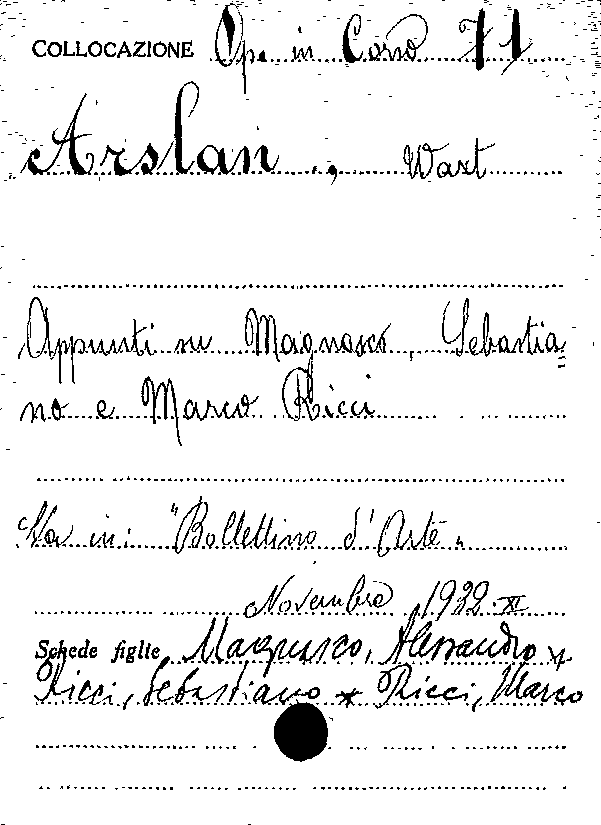 COLLOCAZIONE Op. in Corso 71
Arslan, Wart
Appunti su Magnasco, Sebastia=
no e Marco Ricci
Sta in: "Bollettino d'Arte"
Novembre 1932-XI
Schede figlie Magnasco, Alessandro *
Ricci, Sebastiano * Ricci, Marco